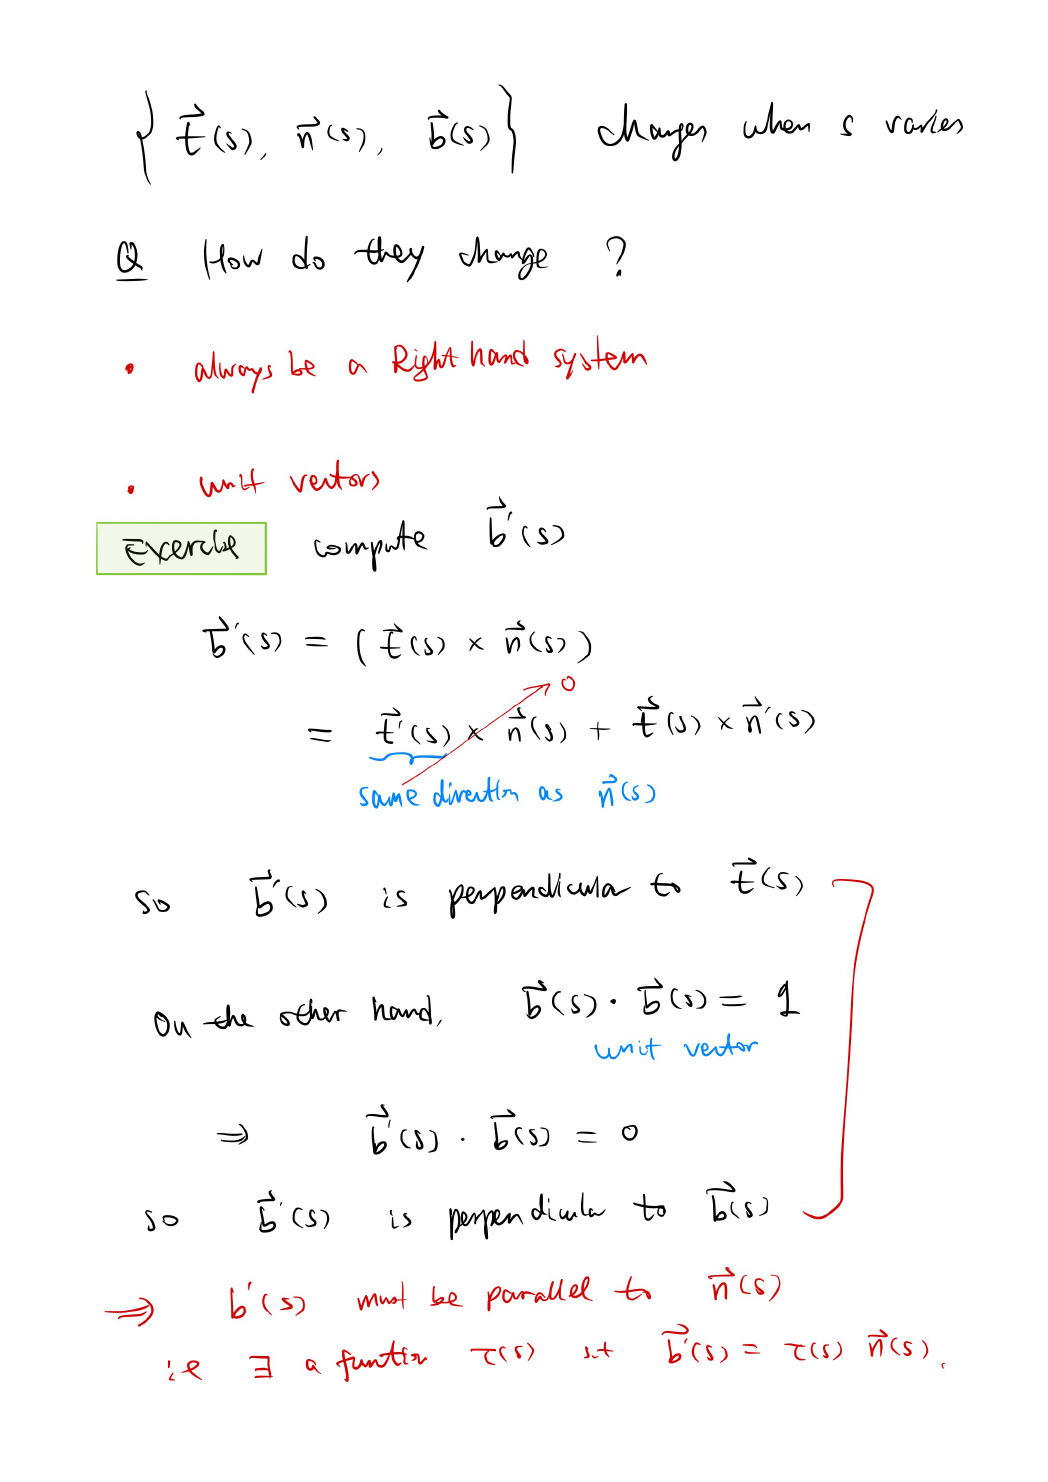 { t⃗(s), n⃗(s), b⃗(s) } changes when s varies
Q How do they change ?
• always be a Right hand system
• unit vectors
Exercise compute b⃗'(s)
b⃗'(s) = ( t⃗(s) × n⃗(s) )
0
= t⃗'(s) × n⃗(s) + t⃗(s) × n⃗'(s)
same direction as n⃗(s)
so b⃗'(s) is perpendicular to t⃗(s)
On the other hand, b⃗(s) · b⃗(s) = 1
unit vector
⇒ b⃗'(s) · b⃗(s) = 0
so b⃗'(s) is perpendicular to b⃗(s)
⇒ b'(s) must be parallel to n⃗(s)
i.e ∃ a function τ(s) s.t b⃗'(s) = τ(s) n⃗(s).